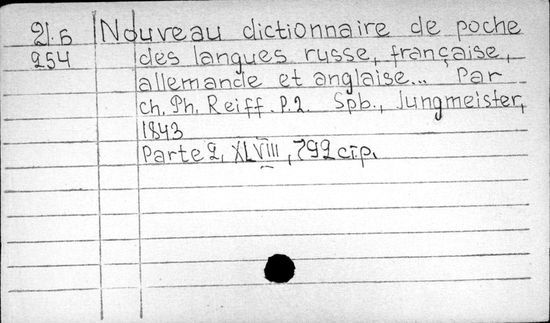 21.Б Nouveau dictionnaire de poche
254 des langues russe, française,
allemande et anglaise... Par
ch. Ph. Reiff. P.2. Spb., Jungmeister,
1843
Parte 2, XLVIII, 792 стр.